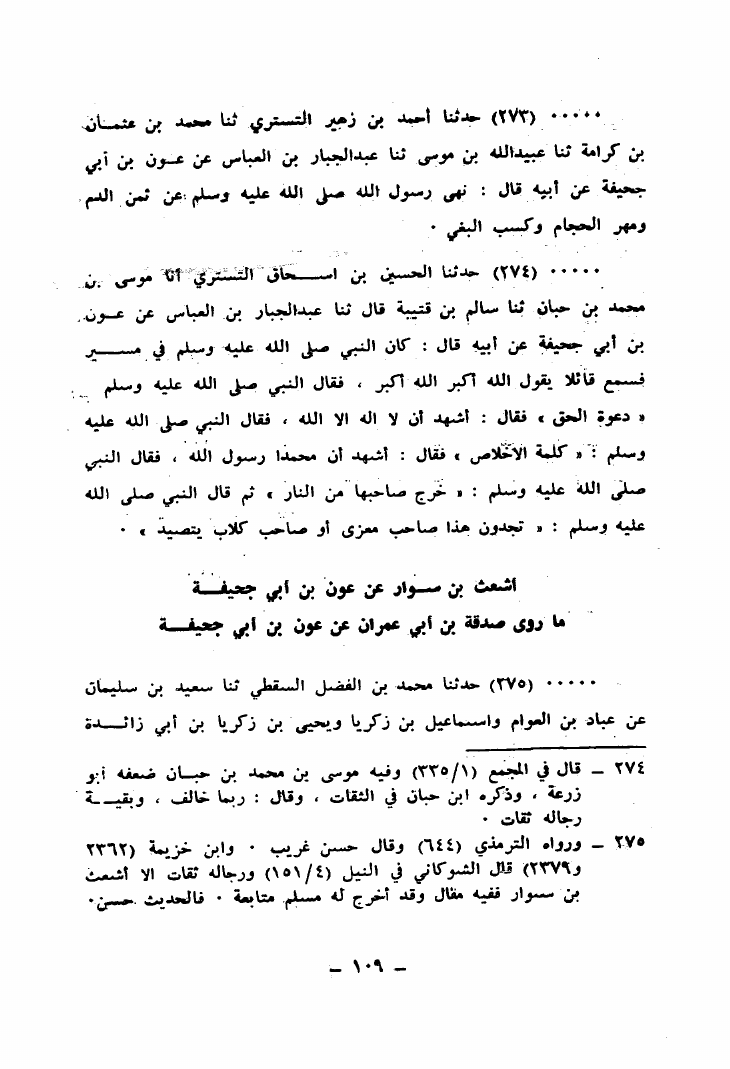 ٠٠٠٠٠ (٢٧٣) حدثنا أحمد بن زهير التستري ثنا محمد بن عثمـان
بن كرامة ثنا عبيدالله بن موسى ثنا عبدالجبار بن العباس عن عـون بن أبي
جحيفة عن أبيه قال : نهى رسول الله صلى الله عليه وسلم عن ثمن الدم
ومهر الحجام وكسب البغي ٠
٠٠٠٠٠ (٢٧٤) حدثنا الحسين بن اســحاق التستري أنا موسى بن
محمد بن حبان ثنا سالم بن قتيبة قال ثنا عبدالجبار بن العباس عن عـون
بن أبي جحيفة عن أبيه قال : كان النبي صلى الله عليه وسلم في مســير
فسمع قائلا يقول الله أكبر الله أكبر ، فقال النبي صلى الله عليه وسلم
« دعوة الحق » فقال : أشهد أن لا اله الا الله ، فقال النبي صلى الله عليه
وسلم : « كلمة الاخلاص » فقال : أشهد أن محمدا رسول الله ، فقال النبي
صلى الله عليه وسلم : « خرج صاحبها من النار » ثم قال النبي صلى الله
عليه وسلم : « تجدون هذا صاحب معزى أو صاحب كلاب يتصيد » ٠
أشعث بن سـوار عن عون بن أبي جحيفــة
ما روى صدقة بن أبي عمران عن عون بن أبي جحيفــة
٠٠٠٠٠ (٢٧٥) حدثنا محمد بن الفضل السقطي ثنا سعيد بن سليمان
عن عباد بن العوام واسماعيل بن زكريا ويحيى بن زكريا بن أبي زائــدة
٢٧٤ ــ قال في المجمع (٣٣٥/١) وفيه موسى بن محمد بن حبـان ضعفه أبو
زرعة ، وذكره ابن حبان في الثقات ، وقال : ربما خالف ، وبقيــة
رجاله ثقات ٠
٢٧٥ ــ ورواه الترمذي (٦٤٤) وقال حسن غريب ٠ وابن خزيمة (٢٣٦٢
و٢٣٧٩) قال الشوكاني في النيل (١٥١/٤) ورجاله ثقات الا أشعث
بن سـوار ففيه مقال وقد أخرج له مسلم متابعة ٠ فالحديث حسن٠
ــ ١٠٩ ــ